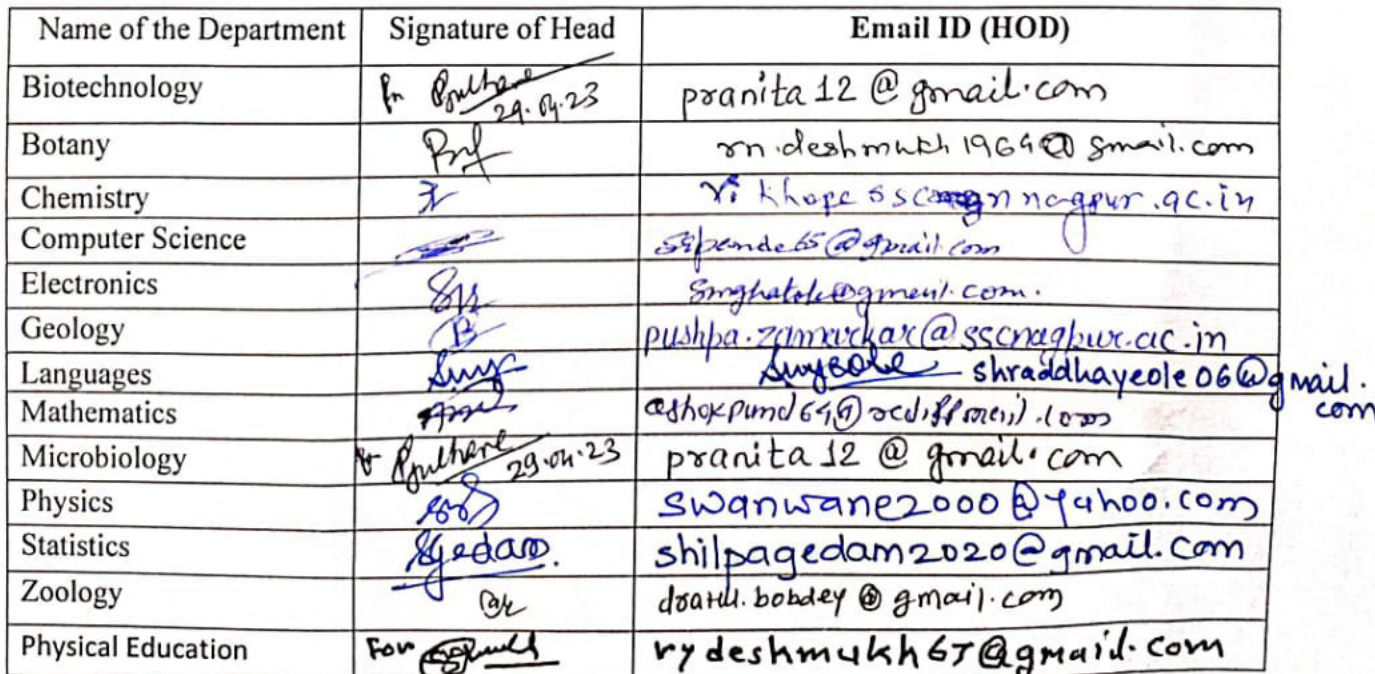 Name of the Department Signature of Head Email ID (HOD)
Biotechnology 29.04.23 pranita12@gmail.com
Botany rn.deshmukh1964@gmail.com
Chemistry nagpur.ac.in
Computer Science sspande65@gmail.com
Electronics
Geology pushpa.zamarkar@sscnagpur.ac.in
Languages shraddhayeole06@gmail.com
Mathematics ashokpund64@rediffmail.com
Microbiology 29.04.23 pranita12@gmail.com
Physics swanwane2000@yahoo.com
Statistics Sgedam. shilpagedam2020@gmail.com
Zoology dratul.bobdey@gmail.com
Physical Education For rydeshmukh67@gmail.com